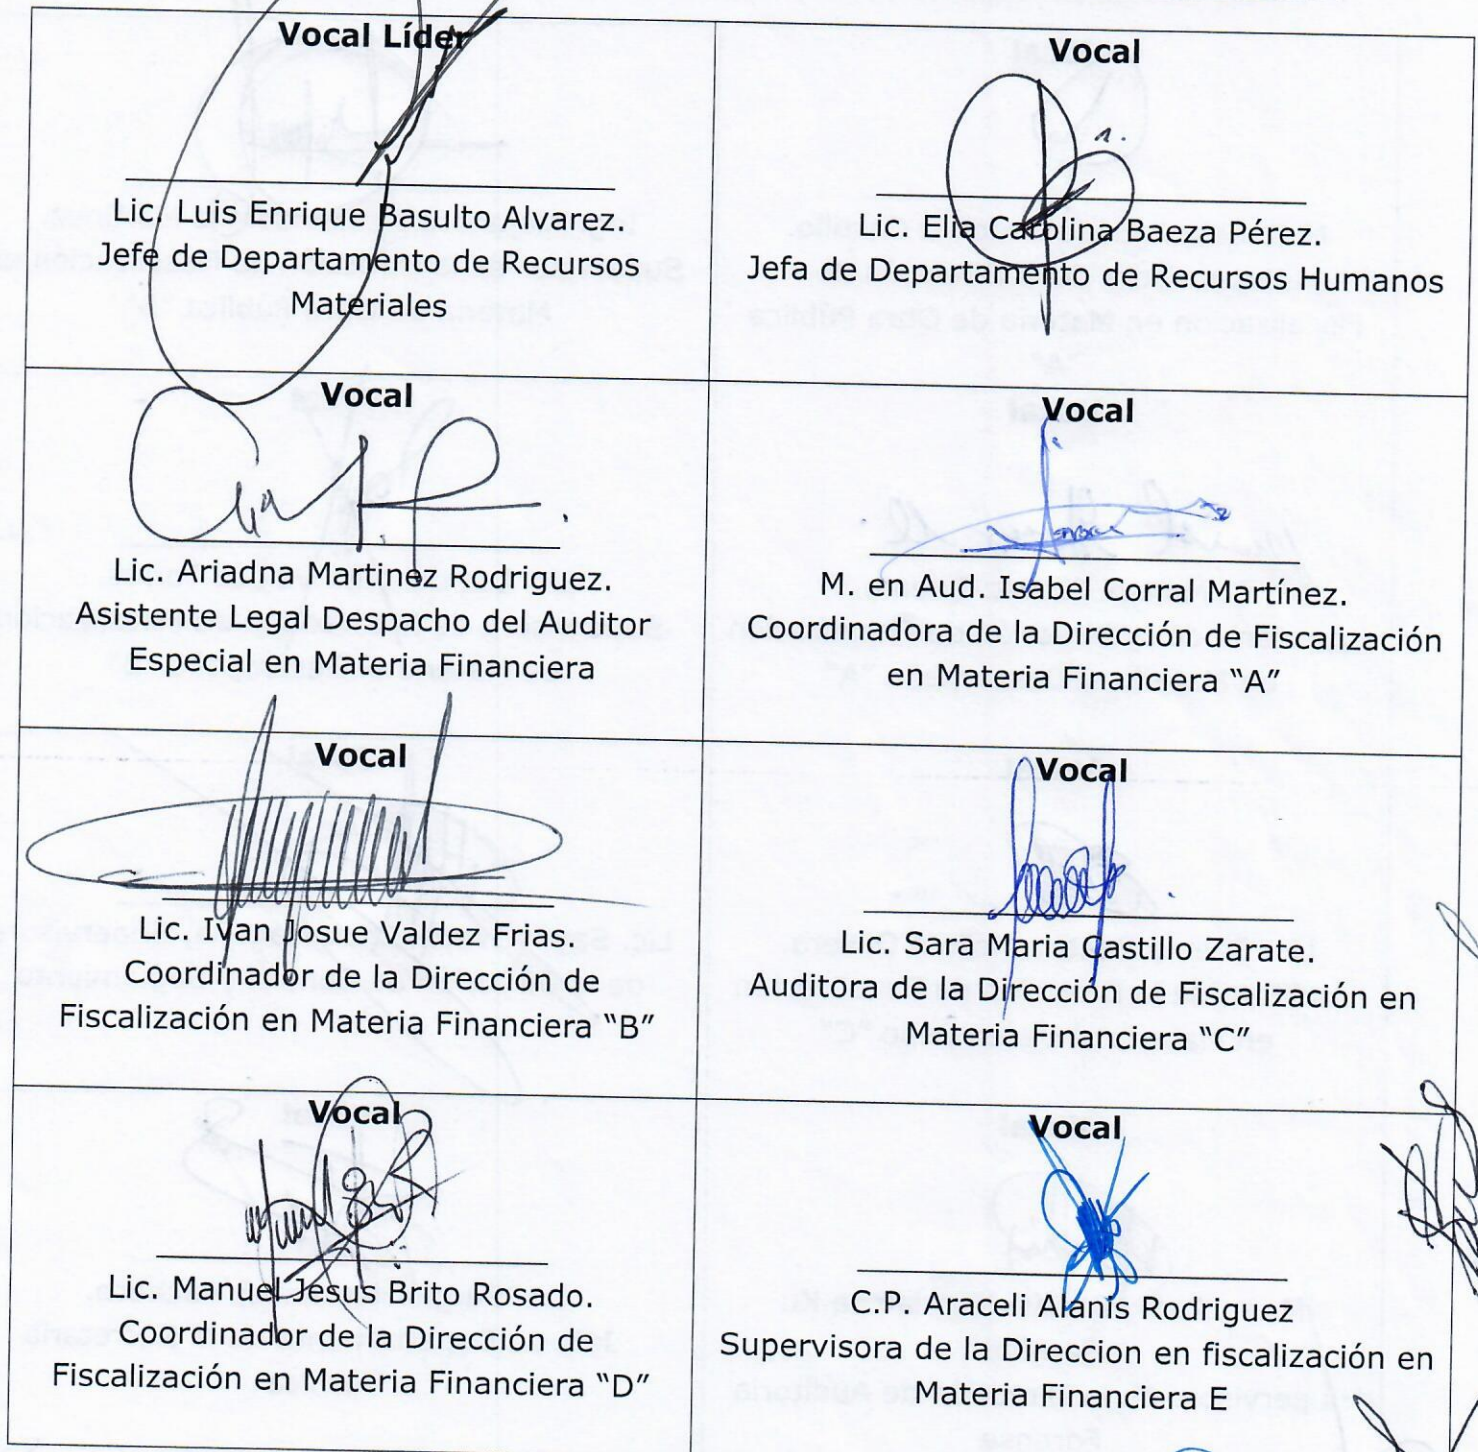 Vocal Líder
Lic. Luis Enrique Basulto Alvarez.
Jefe de Departamento de Recursos
Materiales
Vocal
Lic. Elia Carolina Baeza Pérez.
Jefa de Departamento de Recursos Humanos
Vocal
Lic. Ariadna Martinez Rodriguez.
Asistente Legal Despacho del Auditor
Especial en Materia Financiera
Vocal
M. en Aud. Isabel Corral Martínez.
Coordinadora de la Dirección de Fiscalización
en Materia Financiera “A”
Vocal
Lic. Ivan Josue Valdez Frias.
Coordinador de la Dirección de
Fiscalización en Materia Financiera “B”
Vocal
Lic. Sara Maria Castillo Zarate.
Auditora de la Dirección de Fiscalización en
Materia Financiera “C”
Vocal
Lic. Manuel Jesus Brito Rosado.
Coordinador de la Dirección de
Fiscalización en Materia Financiera “D”
Vocal
C.P. Araceli Alanis Rodriguez
Supervisora de la Direccion en fiscalización en
Materia Financiera E